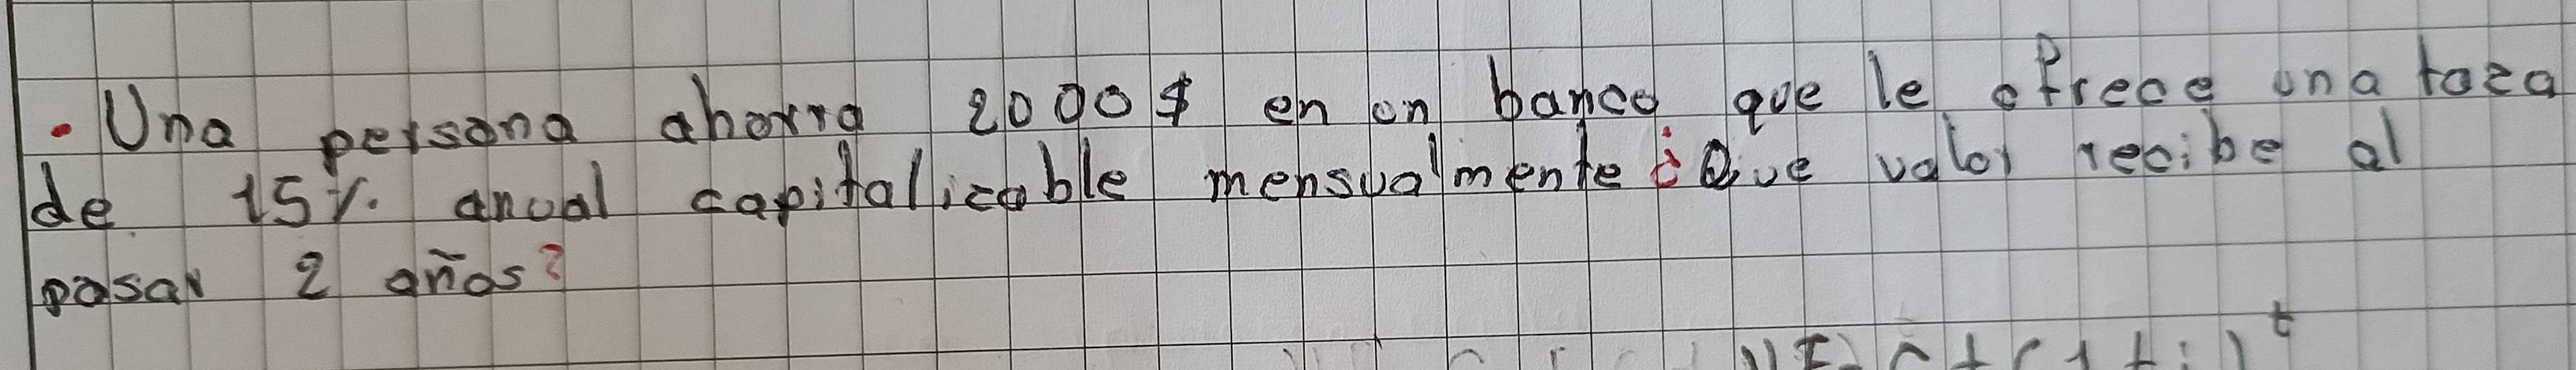 . Una persona ahorra 2000$ en un banco que le ofrece una taza
de 15% anual capitalizable mensualmente ¿Que valor recibe al
pasar 2 años?